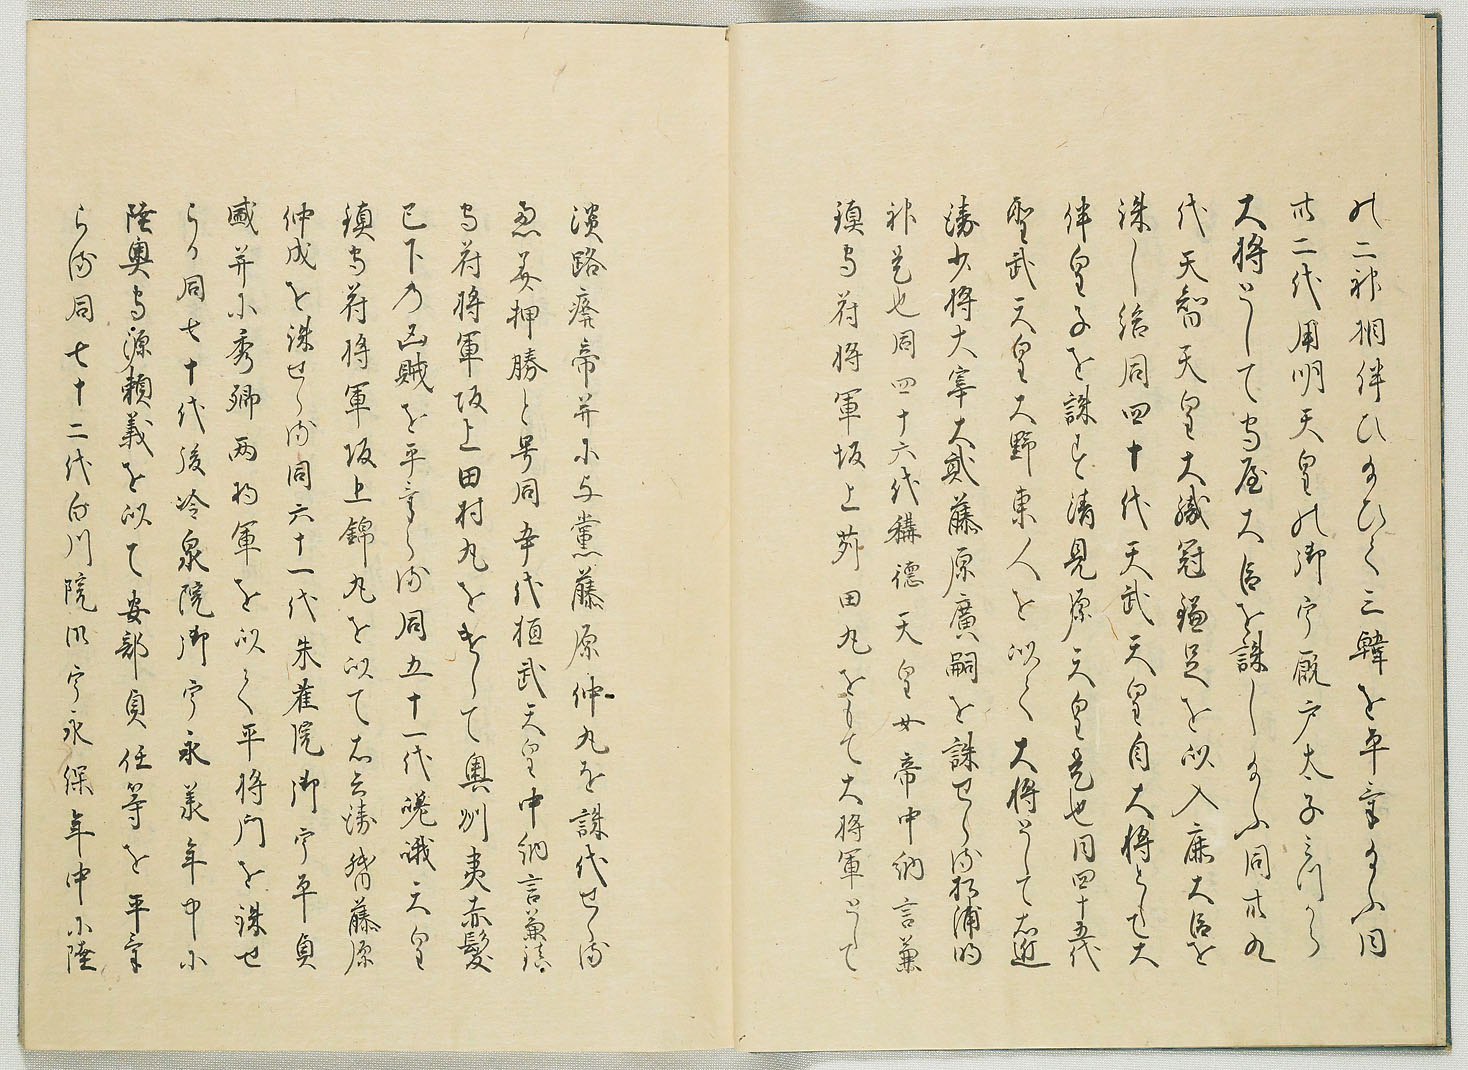 の二神相伴ひ給ひて三韓を平章給ふ同
卅二代用明天皇の御宇厩戸太子みつから
大将として守屋大臣を誅し給ふ同卅九
代天智天皇大織冠鎌足を以入鹿大臣を
誅し給同四十代天武天皇自大将として大
伴皇子を誅す清見原天皇是也同四十五代
聖武天皇大野東人を以て大将として右近
衛少将大宰大貳藤原廣嗣を誅せらる松浦明
神是也同四十六代稱徳天皇女帝中納言兼
鎮守府将軍坂上苅田丸をもて大将軍として
淡路廃帝并に与黨藤原仲丸を誅代せらる
恵美押勝と号同五十代桓武天皇中納言兼鎮
守府将軍坂上田村丸をまけて奥州夷赤髪
已下の凶賊を平章らる同五十一代嵯峨天皇
鎮守府将軍坂上錦丸を以て右兵衛督藤原
仲成を誅せらる同六十一代朱雀院御宇平貞
盛并に秀郷両将軍を以て平将門を誅せ
らる同七十代後冷泉院御宇永承年中に
陸奥守源頼義を以て安部貞任等を平章
らる同七十二代白川院御宇永保年中に陸